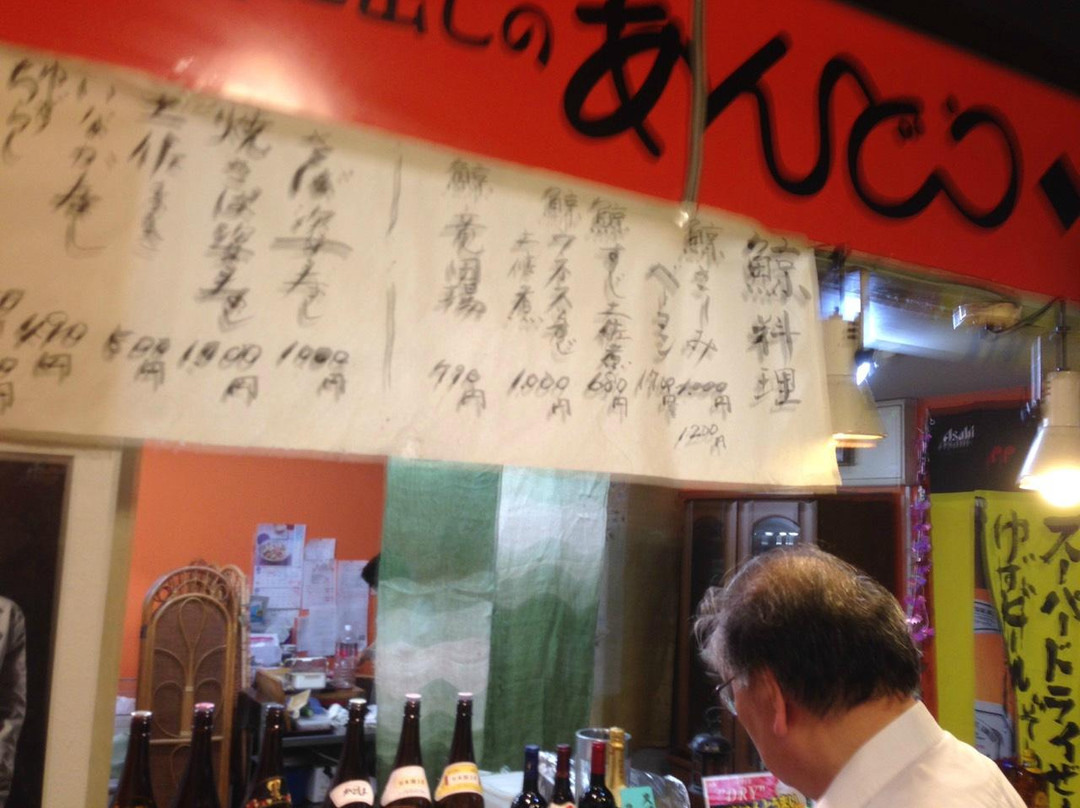 出しのあんどう
鯨料理
鯨さしみ 1000円
1200円
ベーコン 1700円
鯨すじ土佐煮 600円
鯨
土佐煮 1,000円
鯨竜田揚 790円
さば姿ずし 1000円
焼きさば姿ずし 1900円
土佐巻 500円
いなかずし 490円
ゆず
ちらし
Asahi
スーパードライぜ
ゆずビールぞ
"DRY"